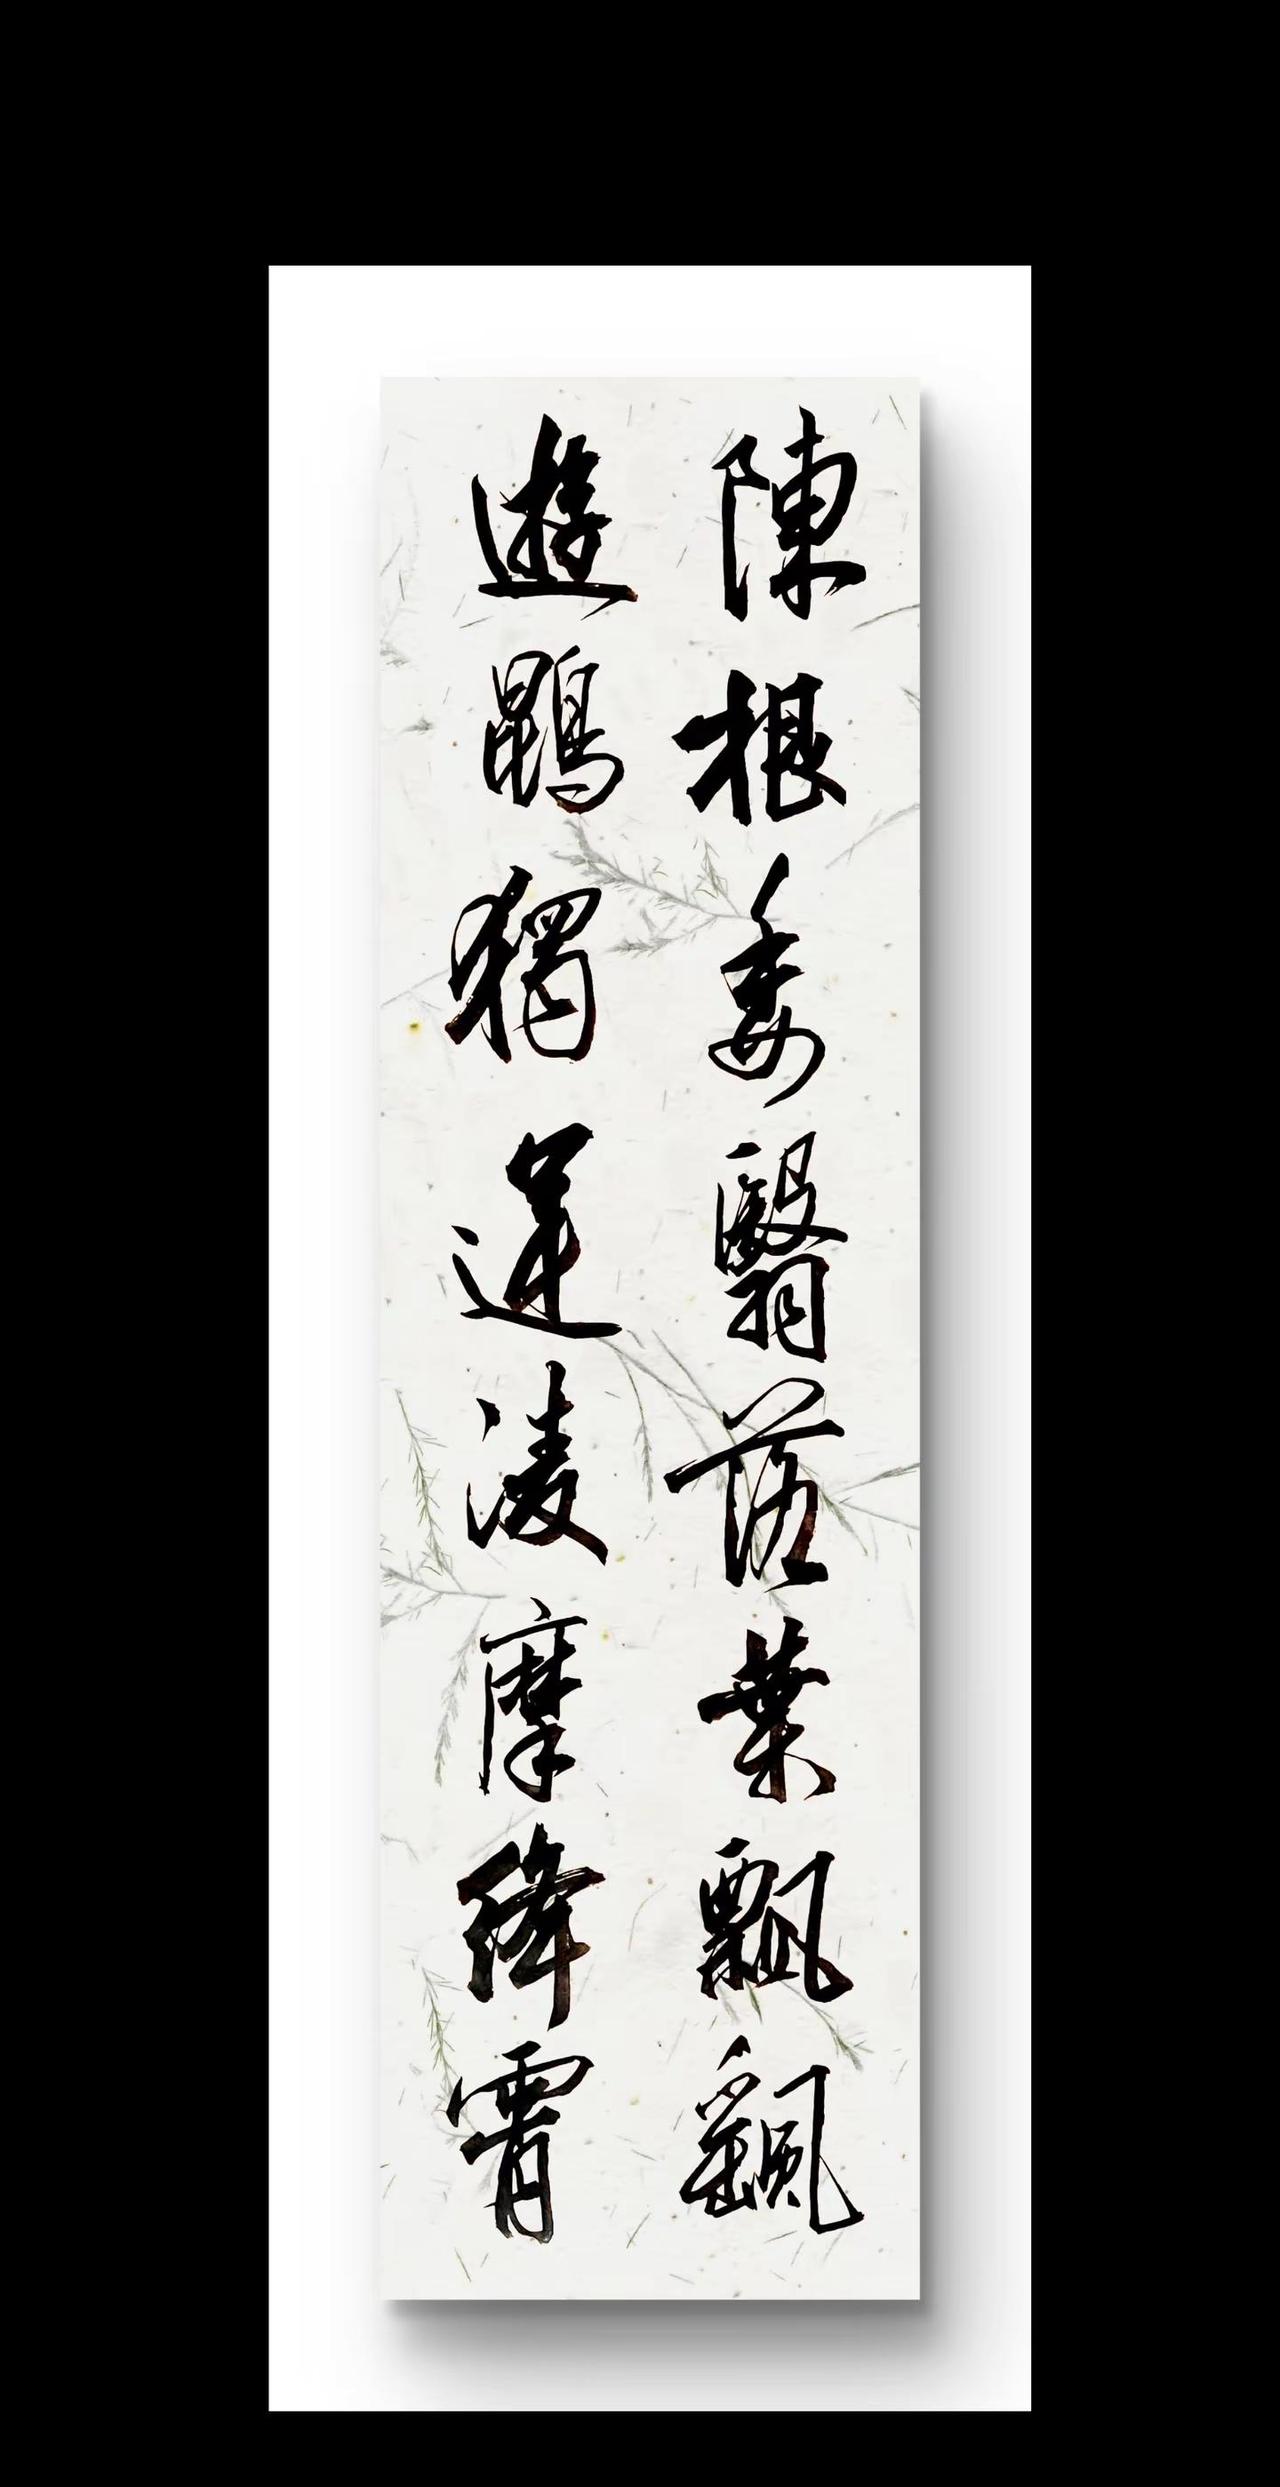 陳根委翳落葉飄颻
遊鵾獨運凌摩絳霄